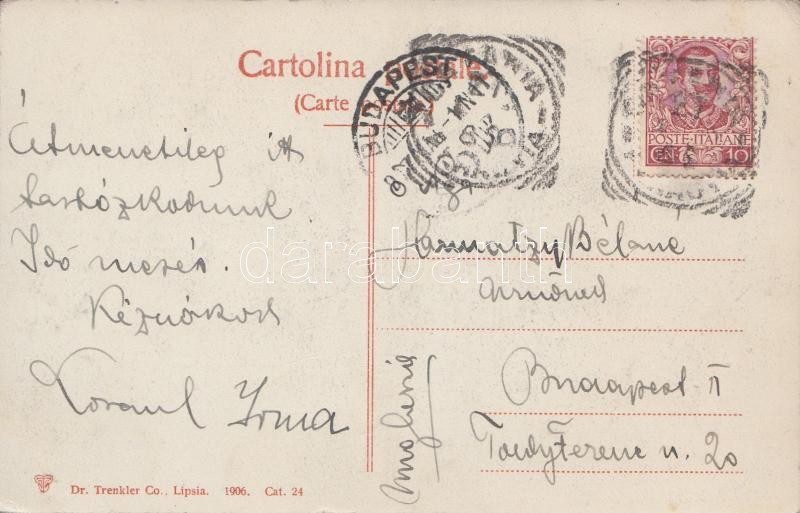 Cartolina Postale.
(Carte postale)
BUDAPEST
POSTE·ITALIANE
CEN 10
Átmenetileg itt
tartózkodunk
Idő mesés.
Kézcsókod
Irma
Harmatzy Béláné
Úrnőnek
Budapest II
Toldy Ferenc u. 20
darabanth
Dr. Trenkler Co., Lipsia. 1906. Cat. 24